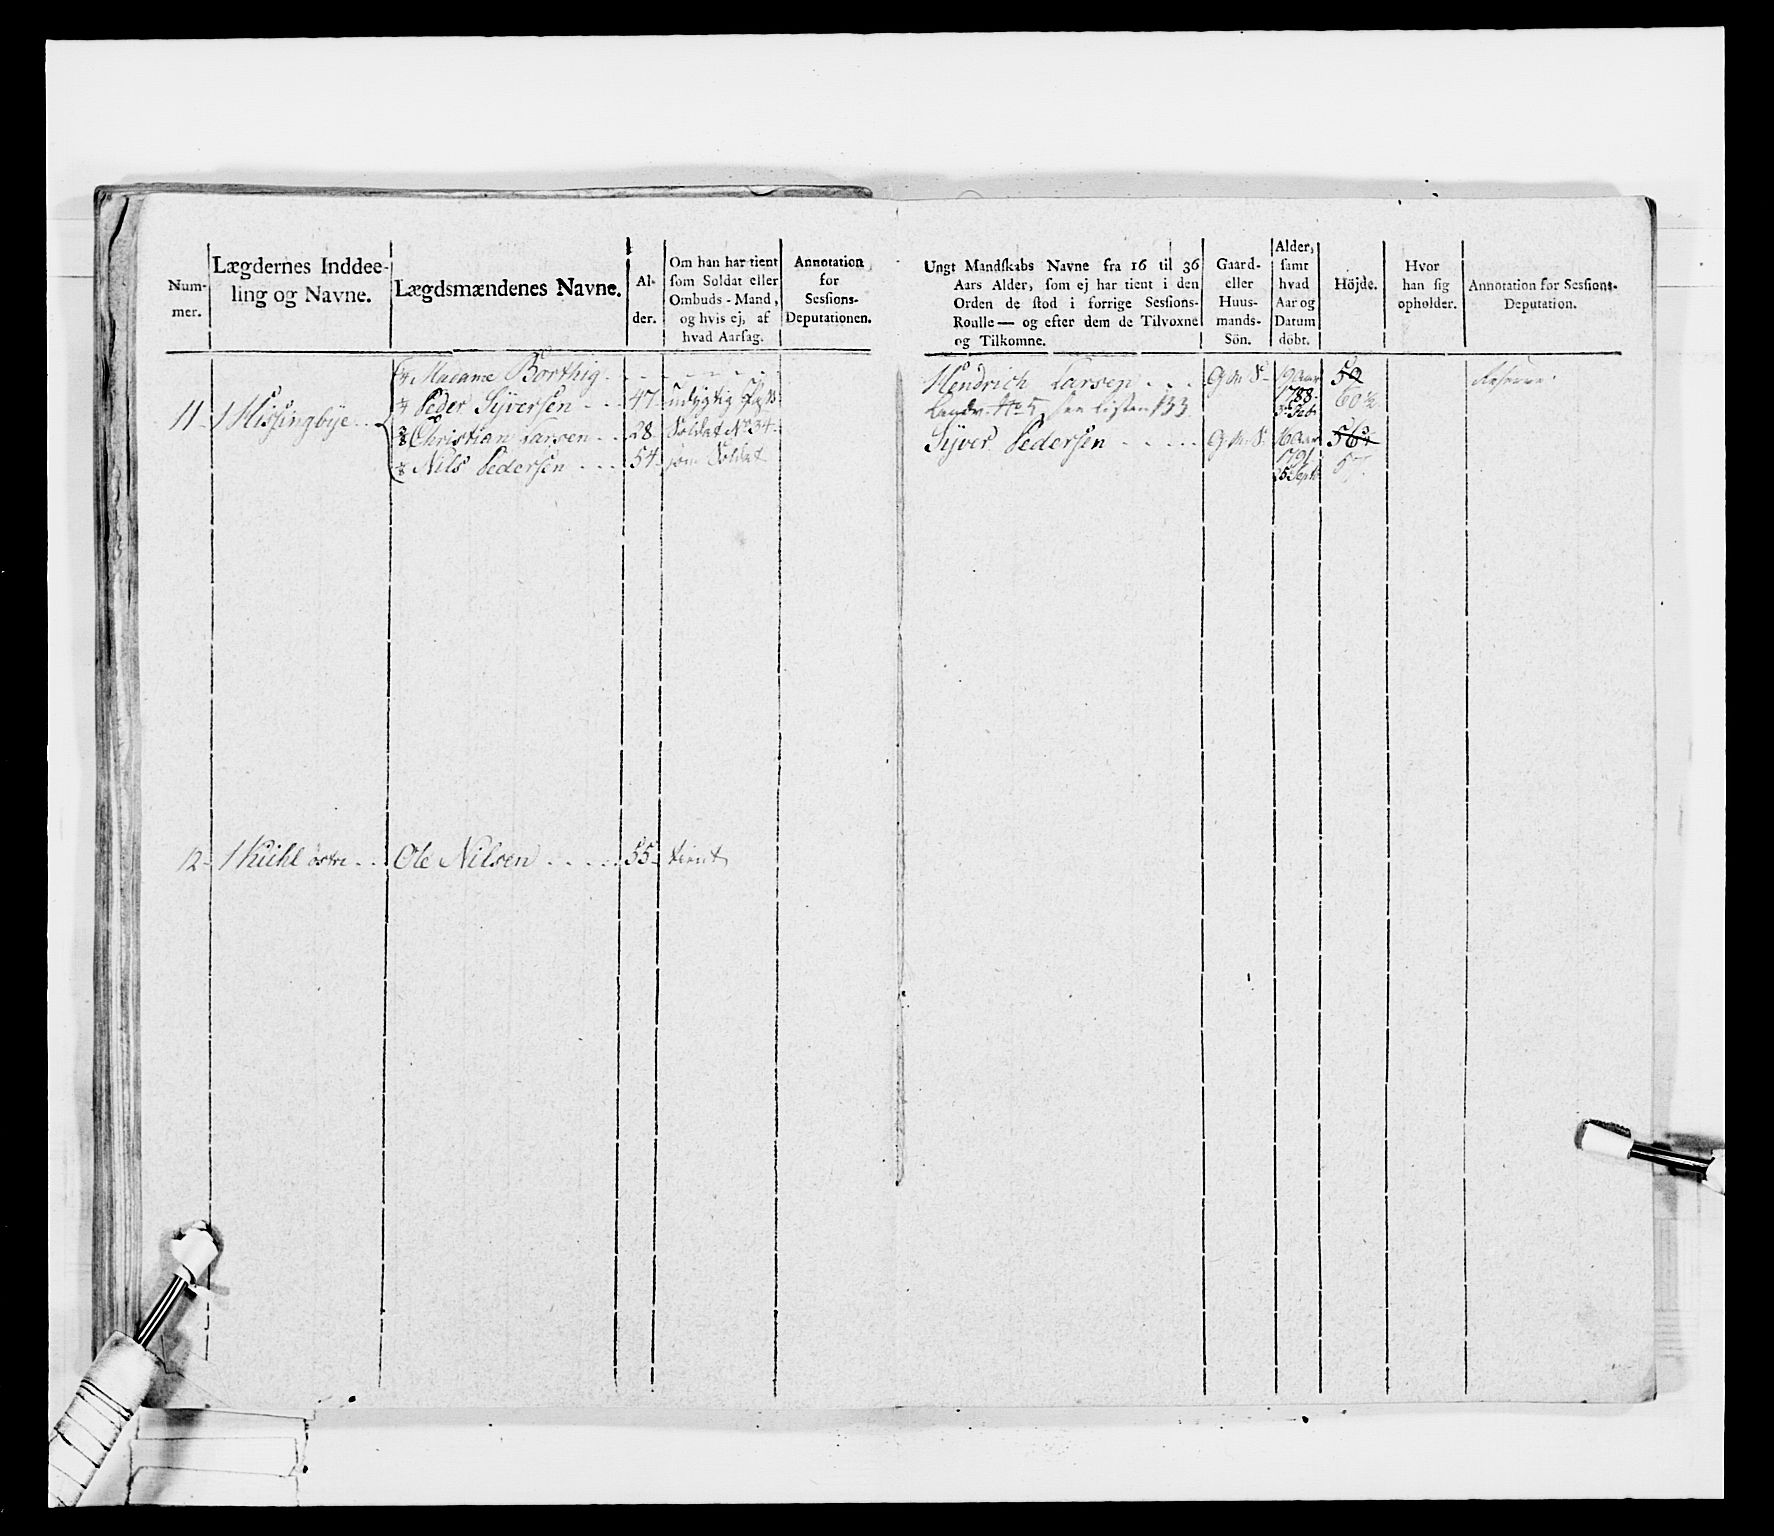 Num-
mer.
Lægdernes Inddee-
ling og Navne.
Lægdsmændenes Navne.
Al-
der.
Om han har tient
som Soldat eller
Ombuds-Mand,
og hvis ej, af
hvad Aarsag.
Annotation
for
Sessions-
Deputationen.
11
1 Hissingbÿe
1/4 Madame Borthig
1/4 Peder Sÿversen 47 udygtig
3/8 Christian Larsen 28 Soldat No 34
1/8 Nils Pedersen 54 som Soldat
12 1 Kuhl østre Ole Nilsen 55 tient
Ungt Mandskabs Navne fra 16 til 36
Aars Alder, som ej har tient i den
Orden de stod i forrige Sessions-
Roulle— og efter dem de Tilvoxne
og Tilkomne.
Gaard-
eller
Huus-
mands-
Sön.
Alder,
samt
hvad
Aar og
Datum
döbt.
Höjde.
Hvor
han sig
opholder.
Annotation for Sessions-
Deputation.
Hendrich Larsen G M S 19 Aar 59 Reserve
Landv. No 5, see Listen 133 1788 60½
3 Feb
Sÿver Pedersen G M S 16 Aar 56¼
1791 57
5 Sept